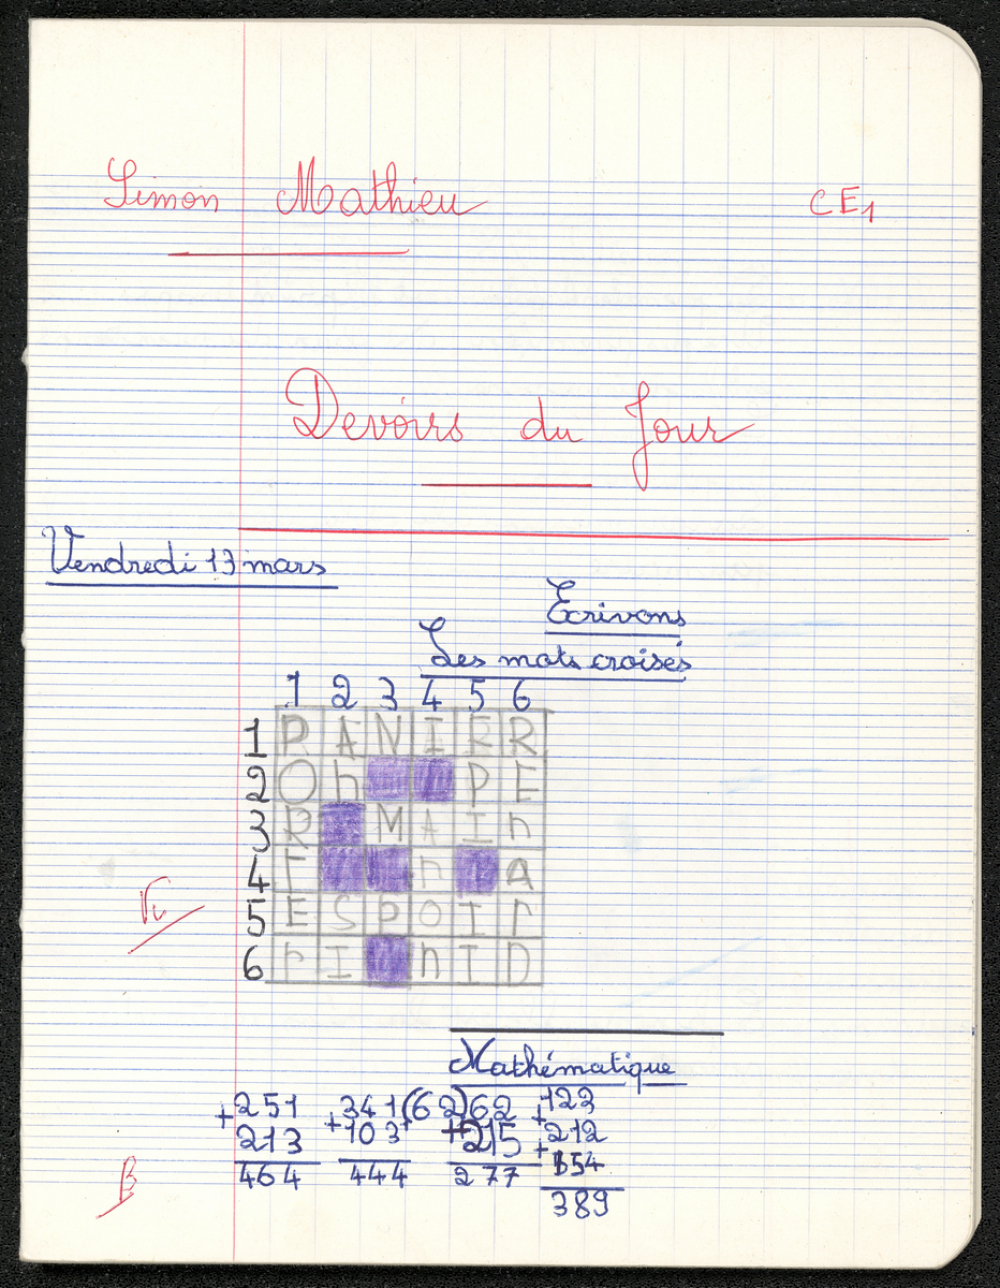 Simon Mathieu CE1
Devoirs du Jour
Vendredi 13 mars
Ecrivons
Les mots croisés
1 2 3 4 5 6
1 P A N I E R
2 O n P E
3 R M A I n
4 T n A
5 E S P O I r
6 r I n I D
Vu
Mathématique
+251 +341 (62) 62 +123
213 103 +215 +212
464 444 277 +154
389
B